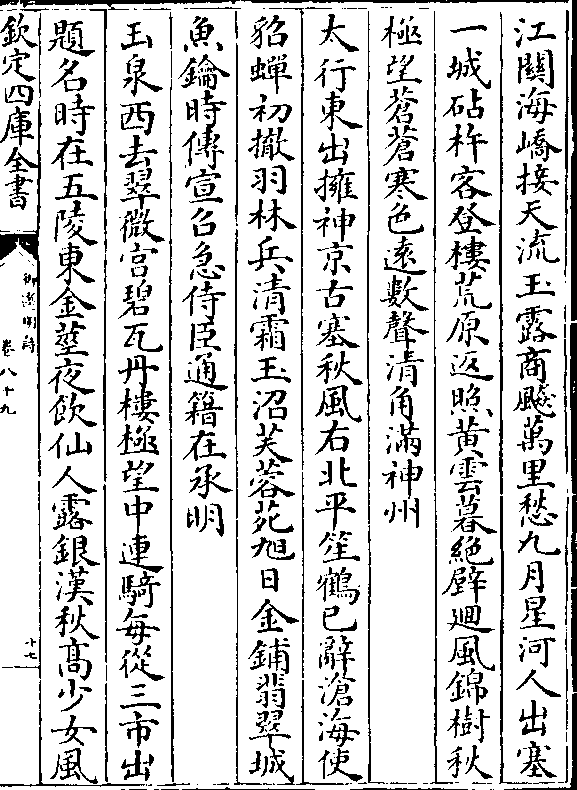 江關海嶠接天流玉露商飈萬里愁九月星河人出塞
一城砧杵客登樓荒原返照黃雲暮絕壁迴風錦樹秋
極望蒼蒼寒色遠數聲清角滿神州
太行東出擁神京古塞秋風右北平笙鶴已辭滄海使
貂蟬初撤羽林兵清霜玉沼芙蓉苑旭日金鋪翡翠城
魚鑰時傳宣召急侍臣通籍在承明
玉泉西去翠微宮碧瓦丹樓極望中連騎每從三市出
題名時在五陵東金莖夜飲仙人露銀漢秋髙少女風
欽定四庫全書
御選明詩
卷八十九
十七